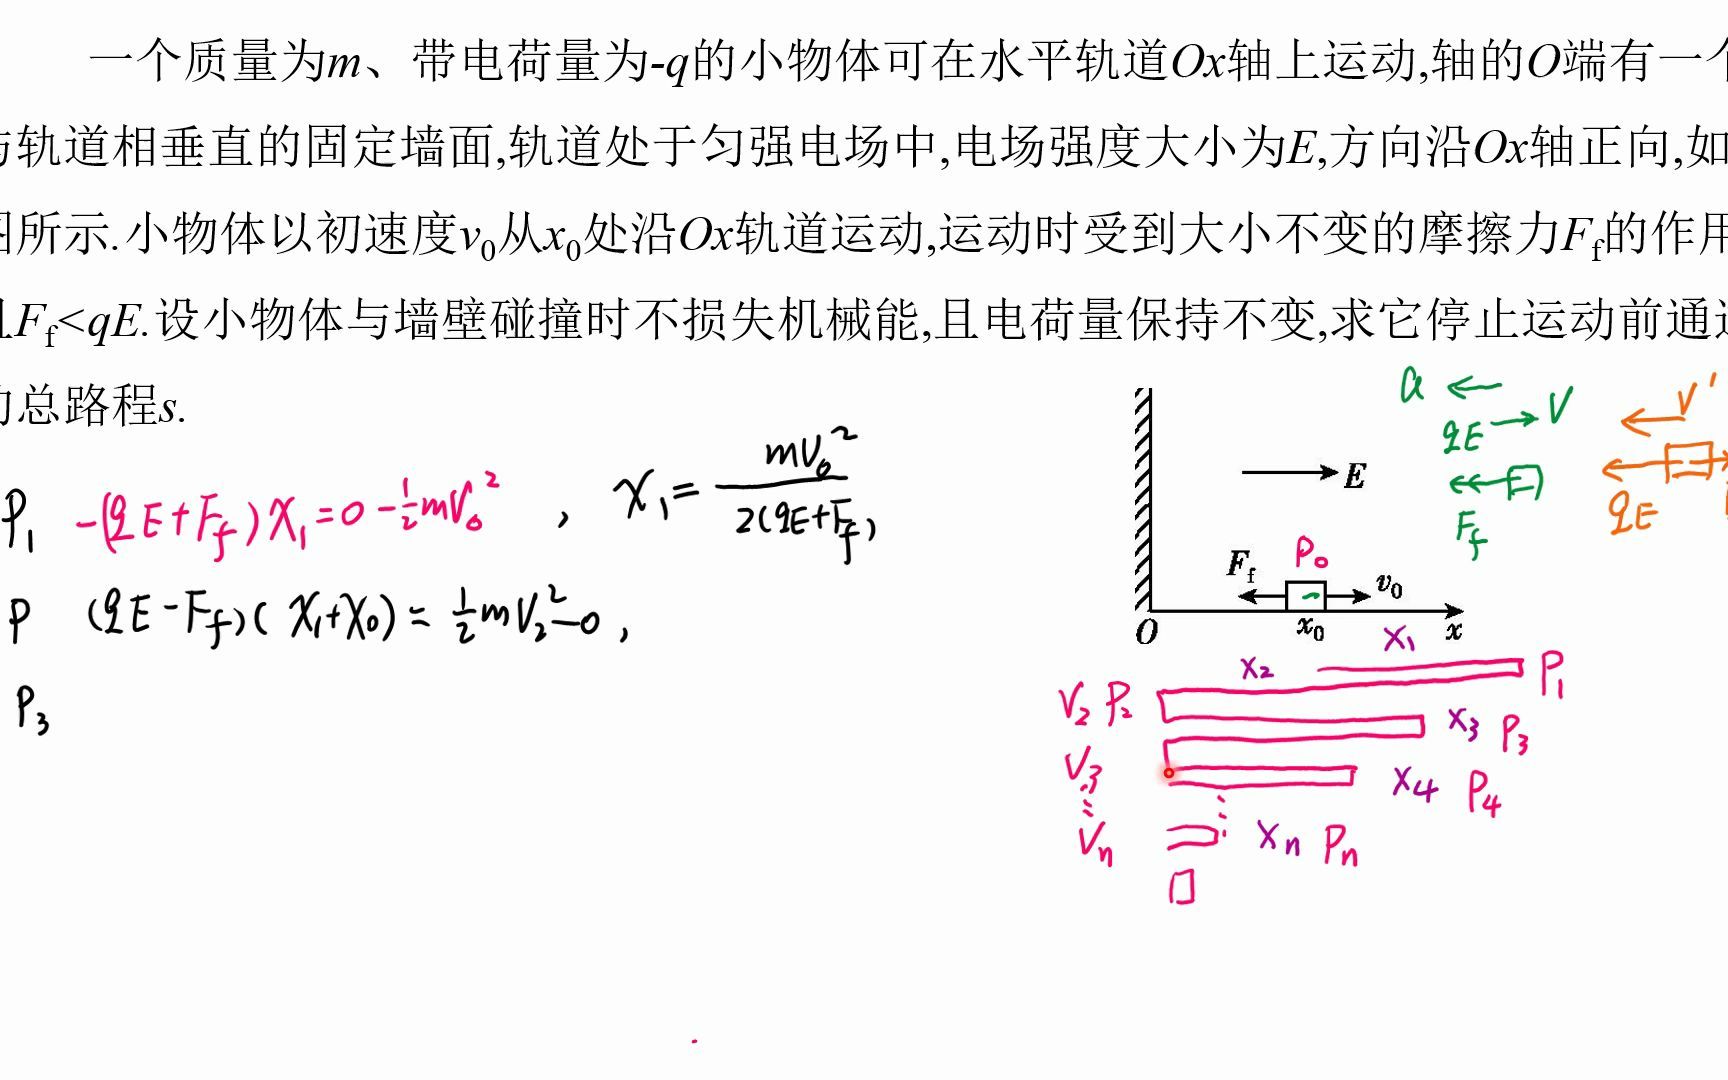 一个质量为m、带电荷量为-q的小物体可在水平轨道Ox轴上运动,轴的O端有一个
轨道相垂直的固定墙面,轨道处于匀强电场中,电场强度大小为E,方向沿Ox轴正向,如
所示.小物体以初速度v₀从x₀处沿Ox轨道运动,运动时受到大小不变的摩擦力F_f的作用
F_f<qE.设小物体与墙壁碰撞时不损失机械能,且电荷量保持不变,求它停止运动前通
总路程s.
a V V'
qE
E
qE
F_f
P₁ -(qE+F_f)x₁=0-½mv₀² , x₁=mv₀²/2(qE+F_f)
P₀
F_f v₀
P (qE-F_f)(x₁+x₀)=½mv₂²-0 ,
O x₀ x₁ x
x₂ P₁
P₃
V₂ P₂ x₃ P₃
V₃ x₄ P₄
⋮ ⋮
Vn xn Pn